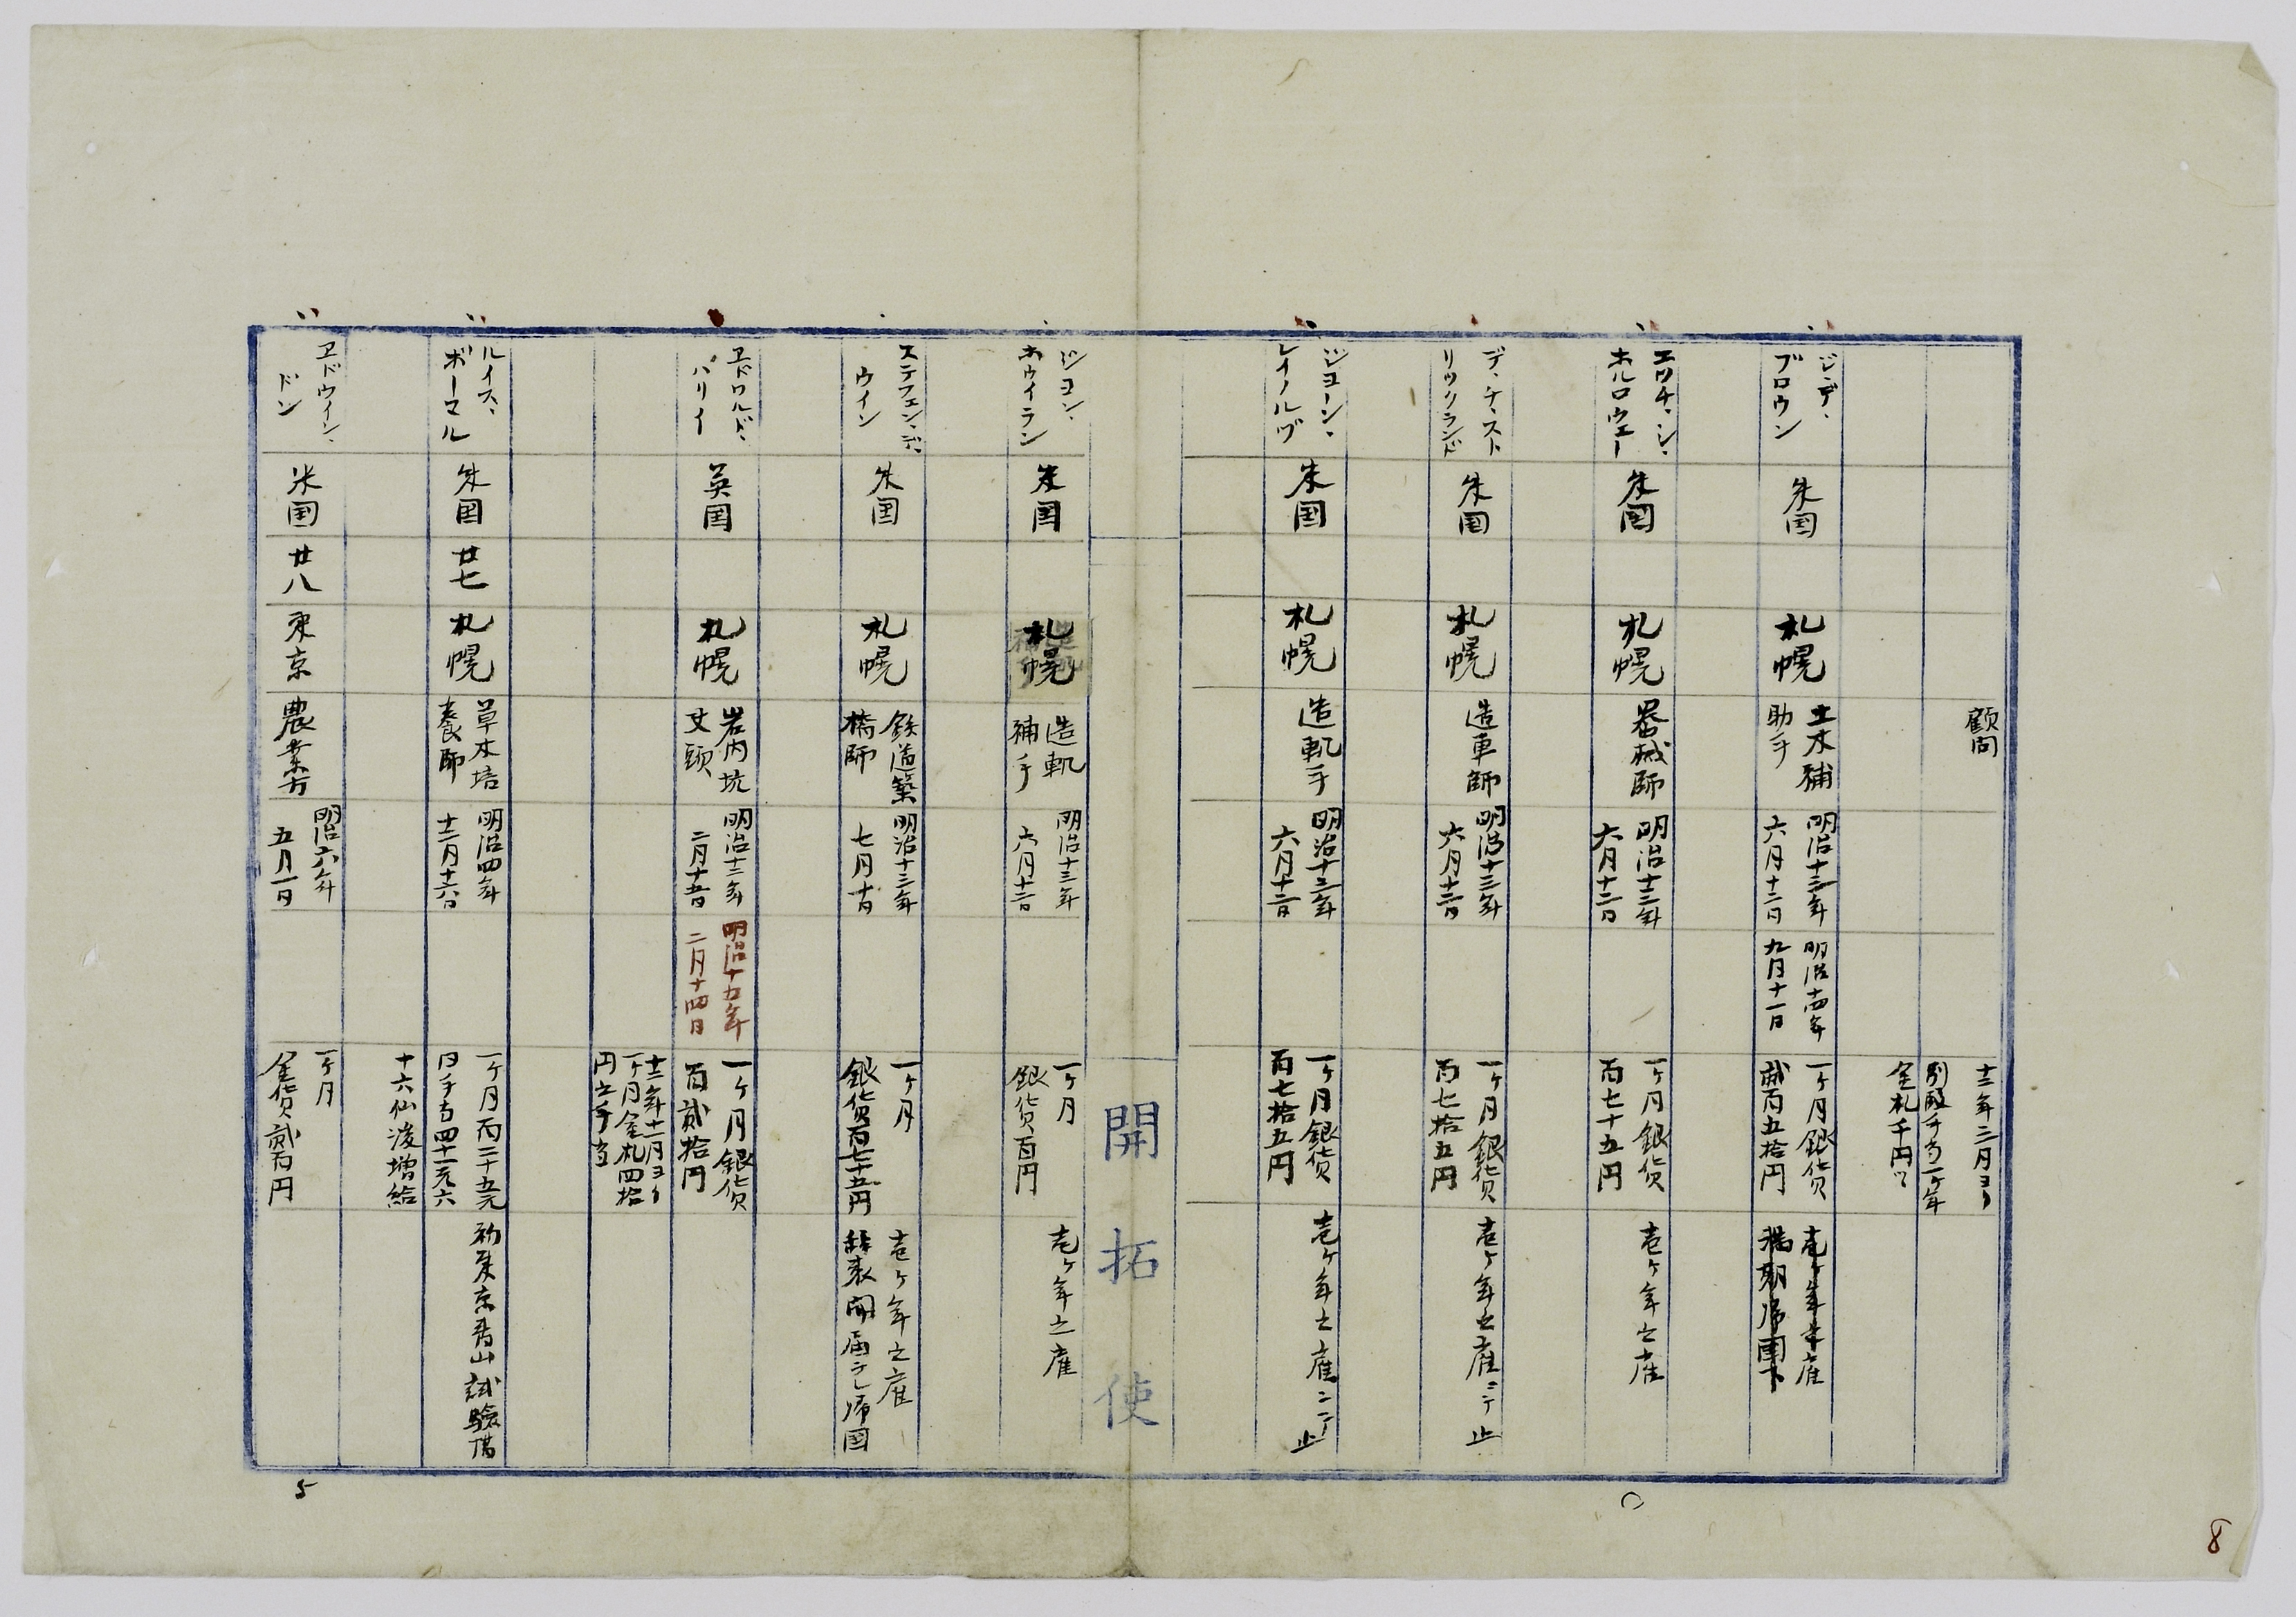 顧問
十二年二月ヨリ
別段手当一ケ年
金札千円ツヽ
ジ、デ、
ブロウン
米国
札幌
土木補
助手
明治十三年
六月十二日
明治十四年
九月十一日
一ケ月銀貨
貳百五拾円
壱ケ年之雇
満期帰国ス
エツチ、シ、
ホルロウエー
米国
札幌
器械師
明治十三年
六月十二日
一ケ月銀貨
百七十五円
壱ケ年之雇
デ、チ、スト
リツクランド
米国
札幌
造車師
明治十三年
六月十二日
一ケ月銀貨
百七拾五円
壱ケ年之雇ニテ止
ジヨーン、
レイノルヅ
米国
札幌
造軌手
明治十三年
六月十二日
一ケ月銀貨
百七拾五円
壱ケ年之雇ニテ止
開拓使
ジヨン、
ホウイラン
米国
札幌
造軌
補手
明治十三年
六月十二日
一ケ月
銀貨百円
壱ケ年之雇
ステフェン、デ、
ウイン
米国
札幌
鉄道築
橋師
明治十三年
七月十日
一ケ月
銀貨百七十五円
壱ケ年之雇
辞表聞届ニテ帰国
ヱドワルド、
パリイ
英国
札幌
岩内坑
丈頭
明治十三年
二月十五日
明治十五年
二月十四日
一ケ月銀貨
百貳拾円
十三年十一月ヨリ
一ケ月金札四拾
円之手当
ルイス、
ボーマル
米国
廿七
札幌
草木培
養師
明治四年
十二月十六日
一ケ月百二十五元
日手当四十一元六
十六仙後増給
初東京青山試験場
ヱドウイン、
ドン
米国
廿八
東京
農業方
明治六年
五月一日
一ケ月
金貨貳百円
5
8